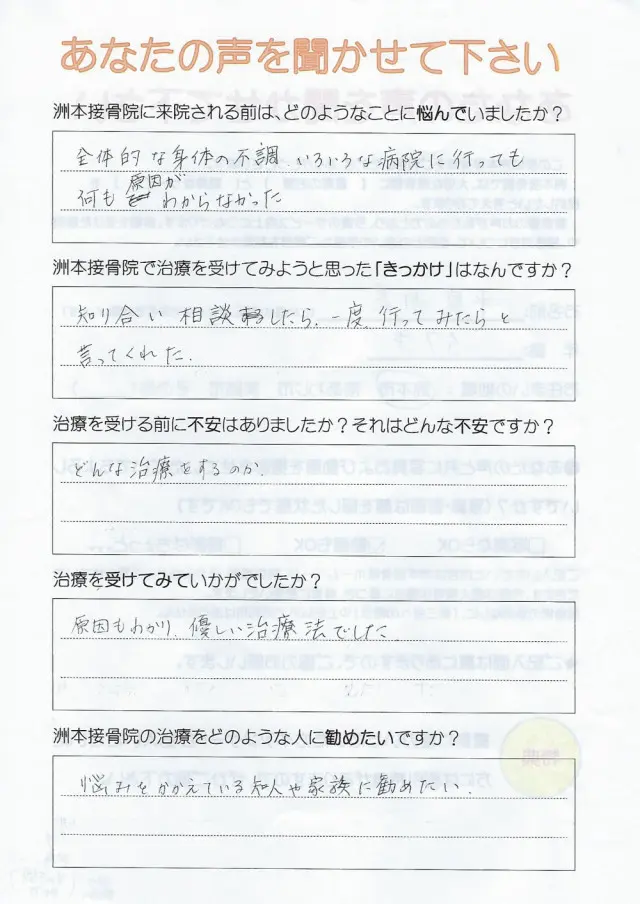 あなたの声を聞かせて下さい
洲本接骨院に来院される前は、どのようなことに悩んでいましたか？
全体的な身体の不調、いろいろな病院に行っても
何も原因がわからなかった
洲本接骨院で治療を受けてみようと思った「きっかけ」はなんですか？
知り合い 相談したら、一度、行ってみたらと
言ってくれた。
治療を受ける前に不安はありましたか？それはどんな不安ですか？
どんな治療をするのか、
治療を受けてみていかがでしたか？
原因もわかり、優しい治療法でした。
洲本接骨院の治療をどのような人に勧めたいですか？
悩みをかかえている知人や家族に勧めたい。